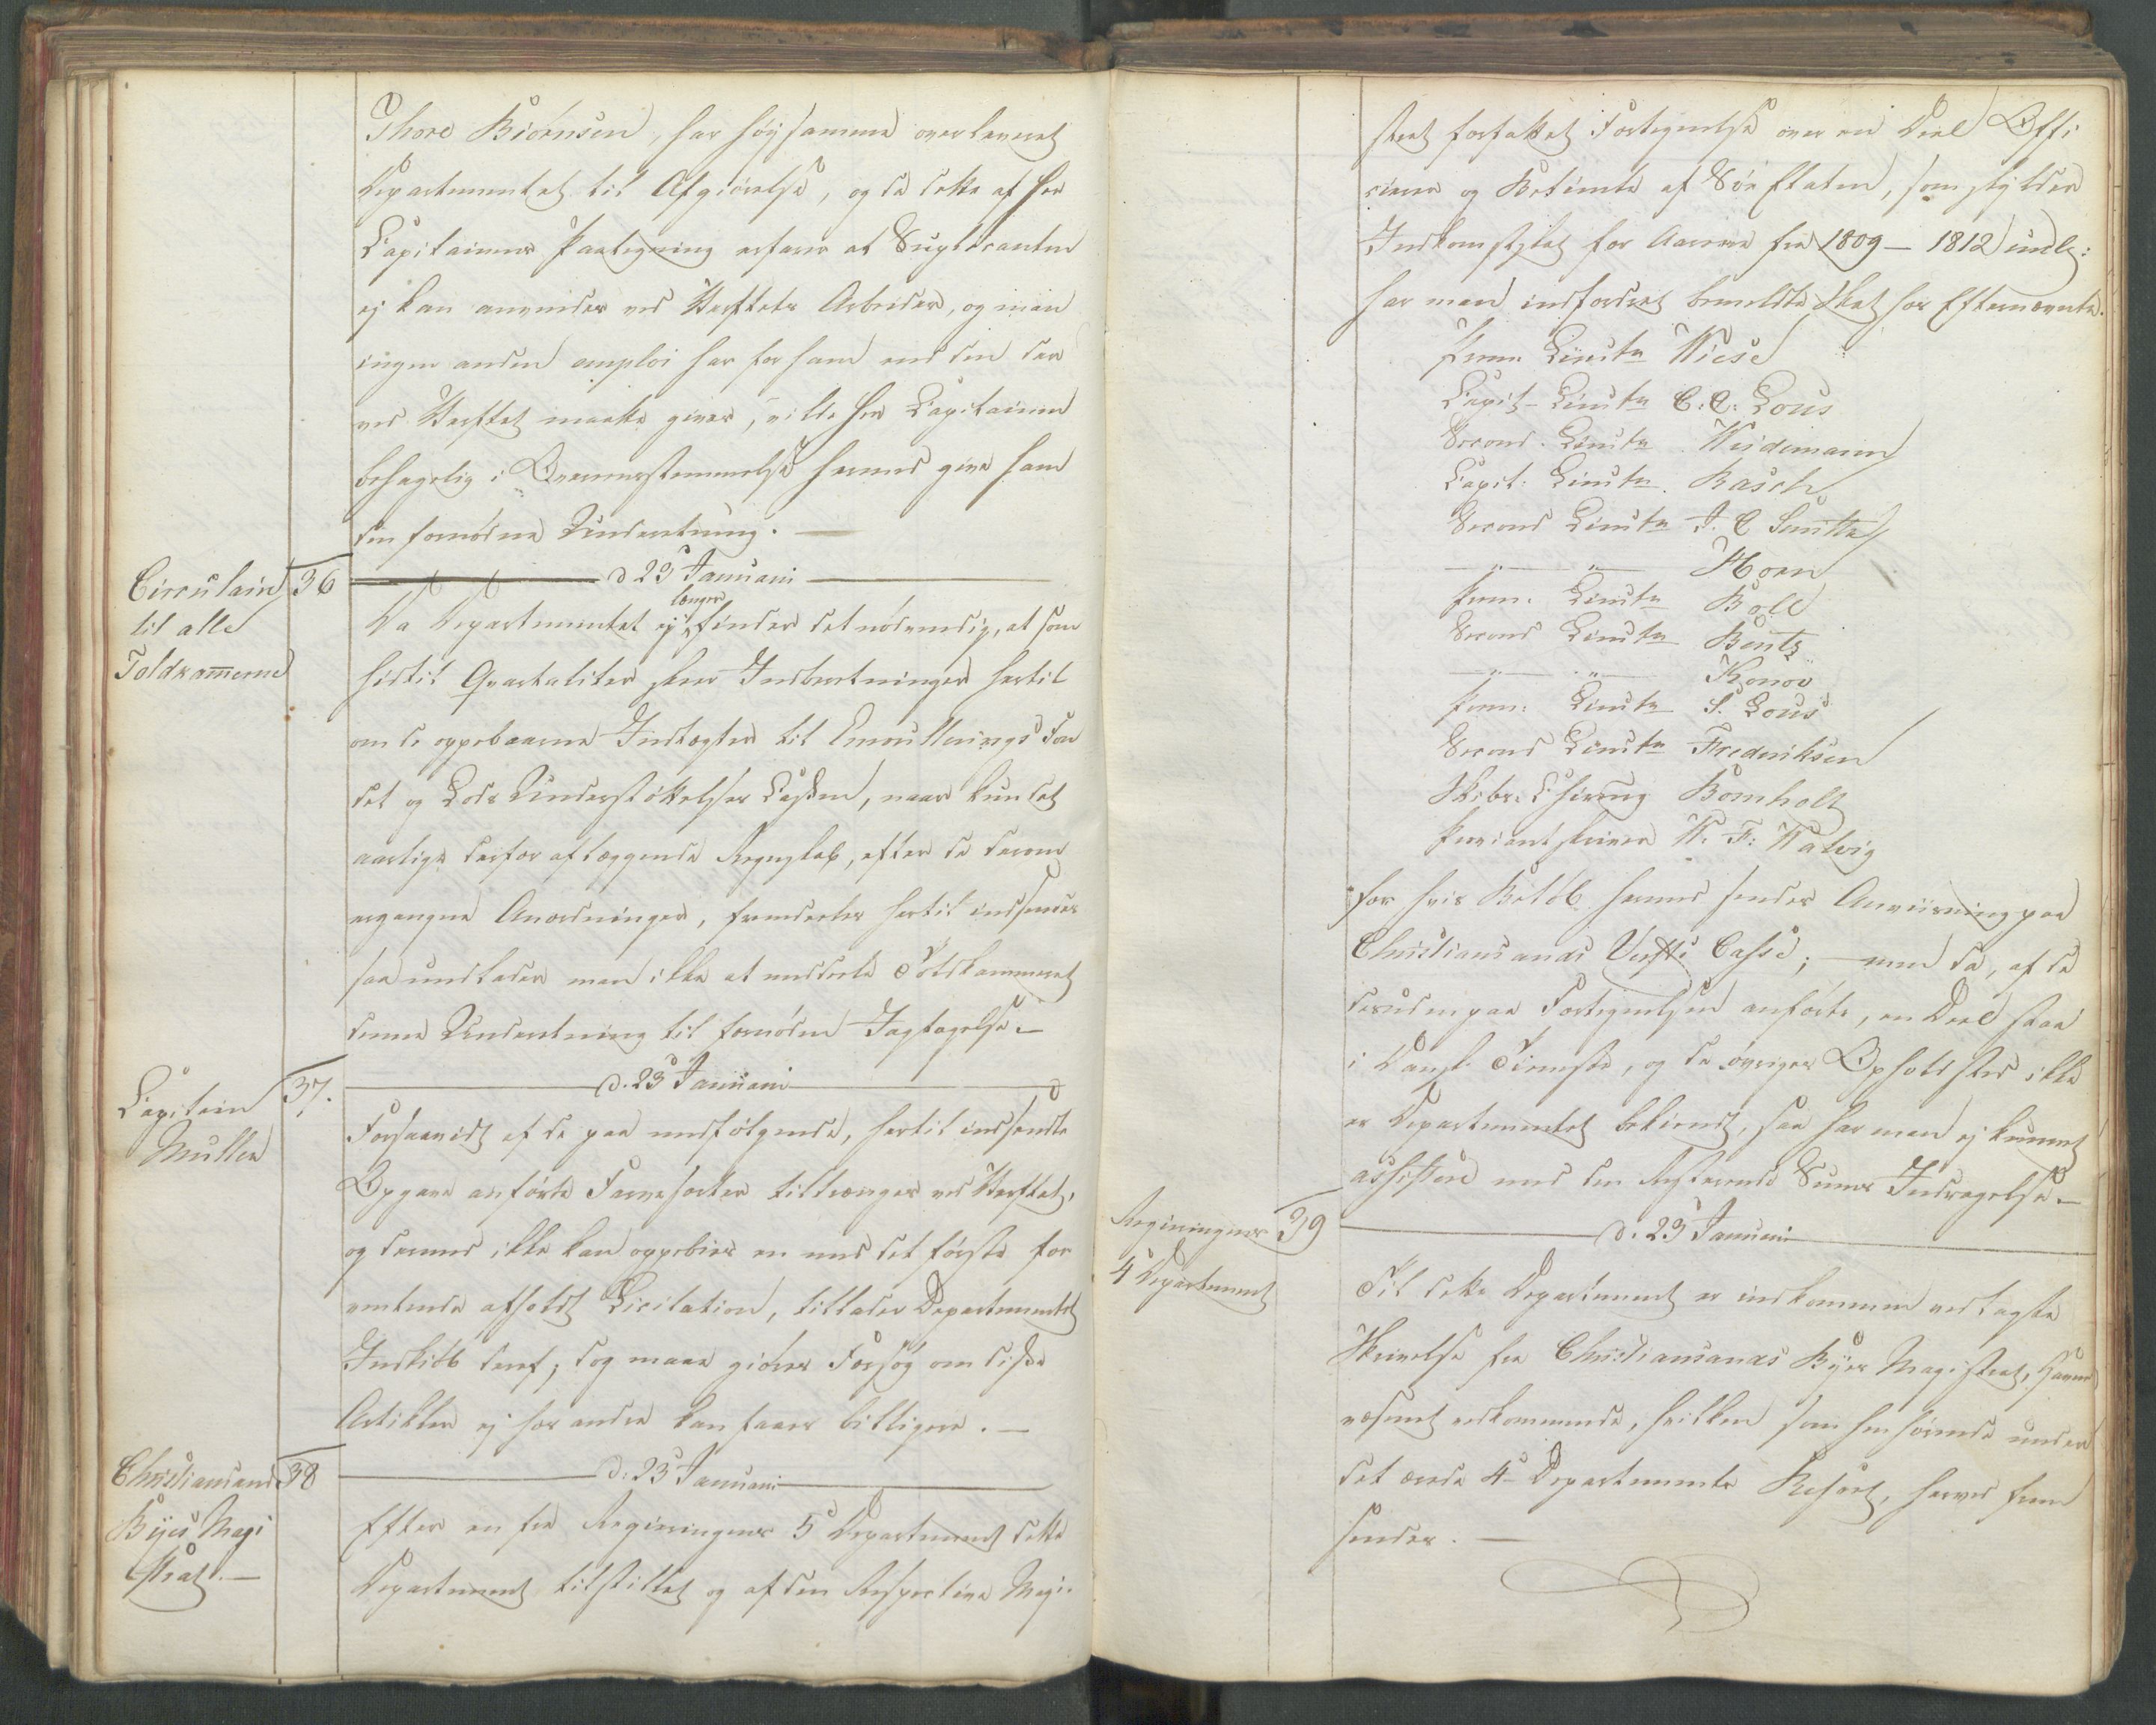 Thore Biörnsen, har höjsamme overleveret
Departementet til Afgiörelse, og da dette af Hr
Capitainens Paategning erfarer at Suplicanten
ej kan anvendes ved Værftets Arbeider, og man
ingen anden emploi har for ham end den der
ved Værftet maatte gives, vilde Hr Capitainen
behagelig i Overeensstemmelse hermed give ham
den fornødne Underretning. —
Circulaire
til alle
Toldkamerne
36
d 23 Januarii
Da Departementet ej længer finder det nödvendig, at som
hidtil Qvartaliter skeer Indberetninger hertil
om de oppebaarne Indtægter til Enroullerings Fon
det og Lods Understöttelses Cassen, naar kun det
aarlige derfor aflæggende Regnskab, efter de derom
ergangne Anordninger, fremdeles hertil indsendes
saa undlader man ikke at meddele Toldkammeret
denne Underretning til fornöden Iagttagelse. —
Capitain
Müller
37.
d. 23 Januarii
Forsaavidt af de paa medfölgende, hertil indsendte
Opgave anförte Farvesorter tiltrænges ved Værftet,
og derned ikke kan oppebies en med det förste for
ventende afholdt Licitation, tillader Departementet
Indkiöb deraf; dog maae giöres Forsög om disse
Artikler ej hos andre kan faaes billigere. —
Christiansands
Byes Magi
strat. —
38
d: 23 Januarii
Efter en fra Regieringens 5 Departement dette
Departement tilstillet og af den Respective Magi-
strat forfattet Fortegnelse over en Deel Offi
cierer og Betiente af Söe Etaten, som skylder
Indkomstskat for Aarene fra 1809 – 1812 incl:
har man indfordret bemeldte Skat hos Efternævnte.
Prem. Lieutn Wiese
Capit- Lieutn C. C. Lous
Second. Lieutn Weidemann
Capit: Lieutn. Rasch
Second Lieutn J. C Smitth
— " — " — Horn
Prem. Lieutn Boll
Second Lieutn Bentz
— " — " — Konow
Prem: Lieutn S. Lous
Second Lieutn Frederiksen
Skibs: Chirurg Bomholt
Proviantskriver W. F: Walvig
for hvis Belöb hermed sendes Anviisning paa
Christiansands Verfts Casse; — men da, af de
desuden paa Fortegnelsen anförte, en Deel staae
i Dansk Tieneste, og de övriges Opholdsted ikke
er Departementet bekiendt, saa har man ej kunnet
assistere med den Resterende Sums Inddragelse. —
Regieringens
4 Departement
39
d. 23 Januarii
Til dette Departement er indkommen vedlagte
Skrivelse fra Christiansands Byes Magistrat, Havne
væsenet vedkommende, hvilken som henhörende under
det ærede 4de Departements Resort, herved frem
sendes. —